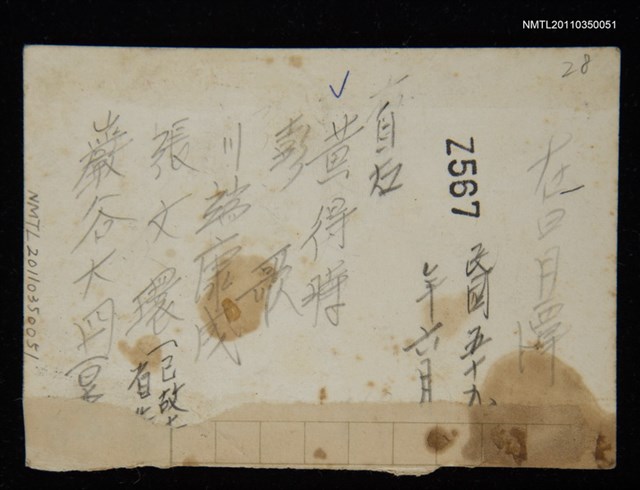 NMTL20110350051
28
在日月潭
民國五十九
年六月
Z567
自右
黃得時
彭 歌
川端康成
張文環
巖谷大四
NMTL20110350051